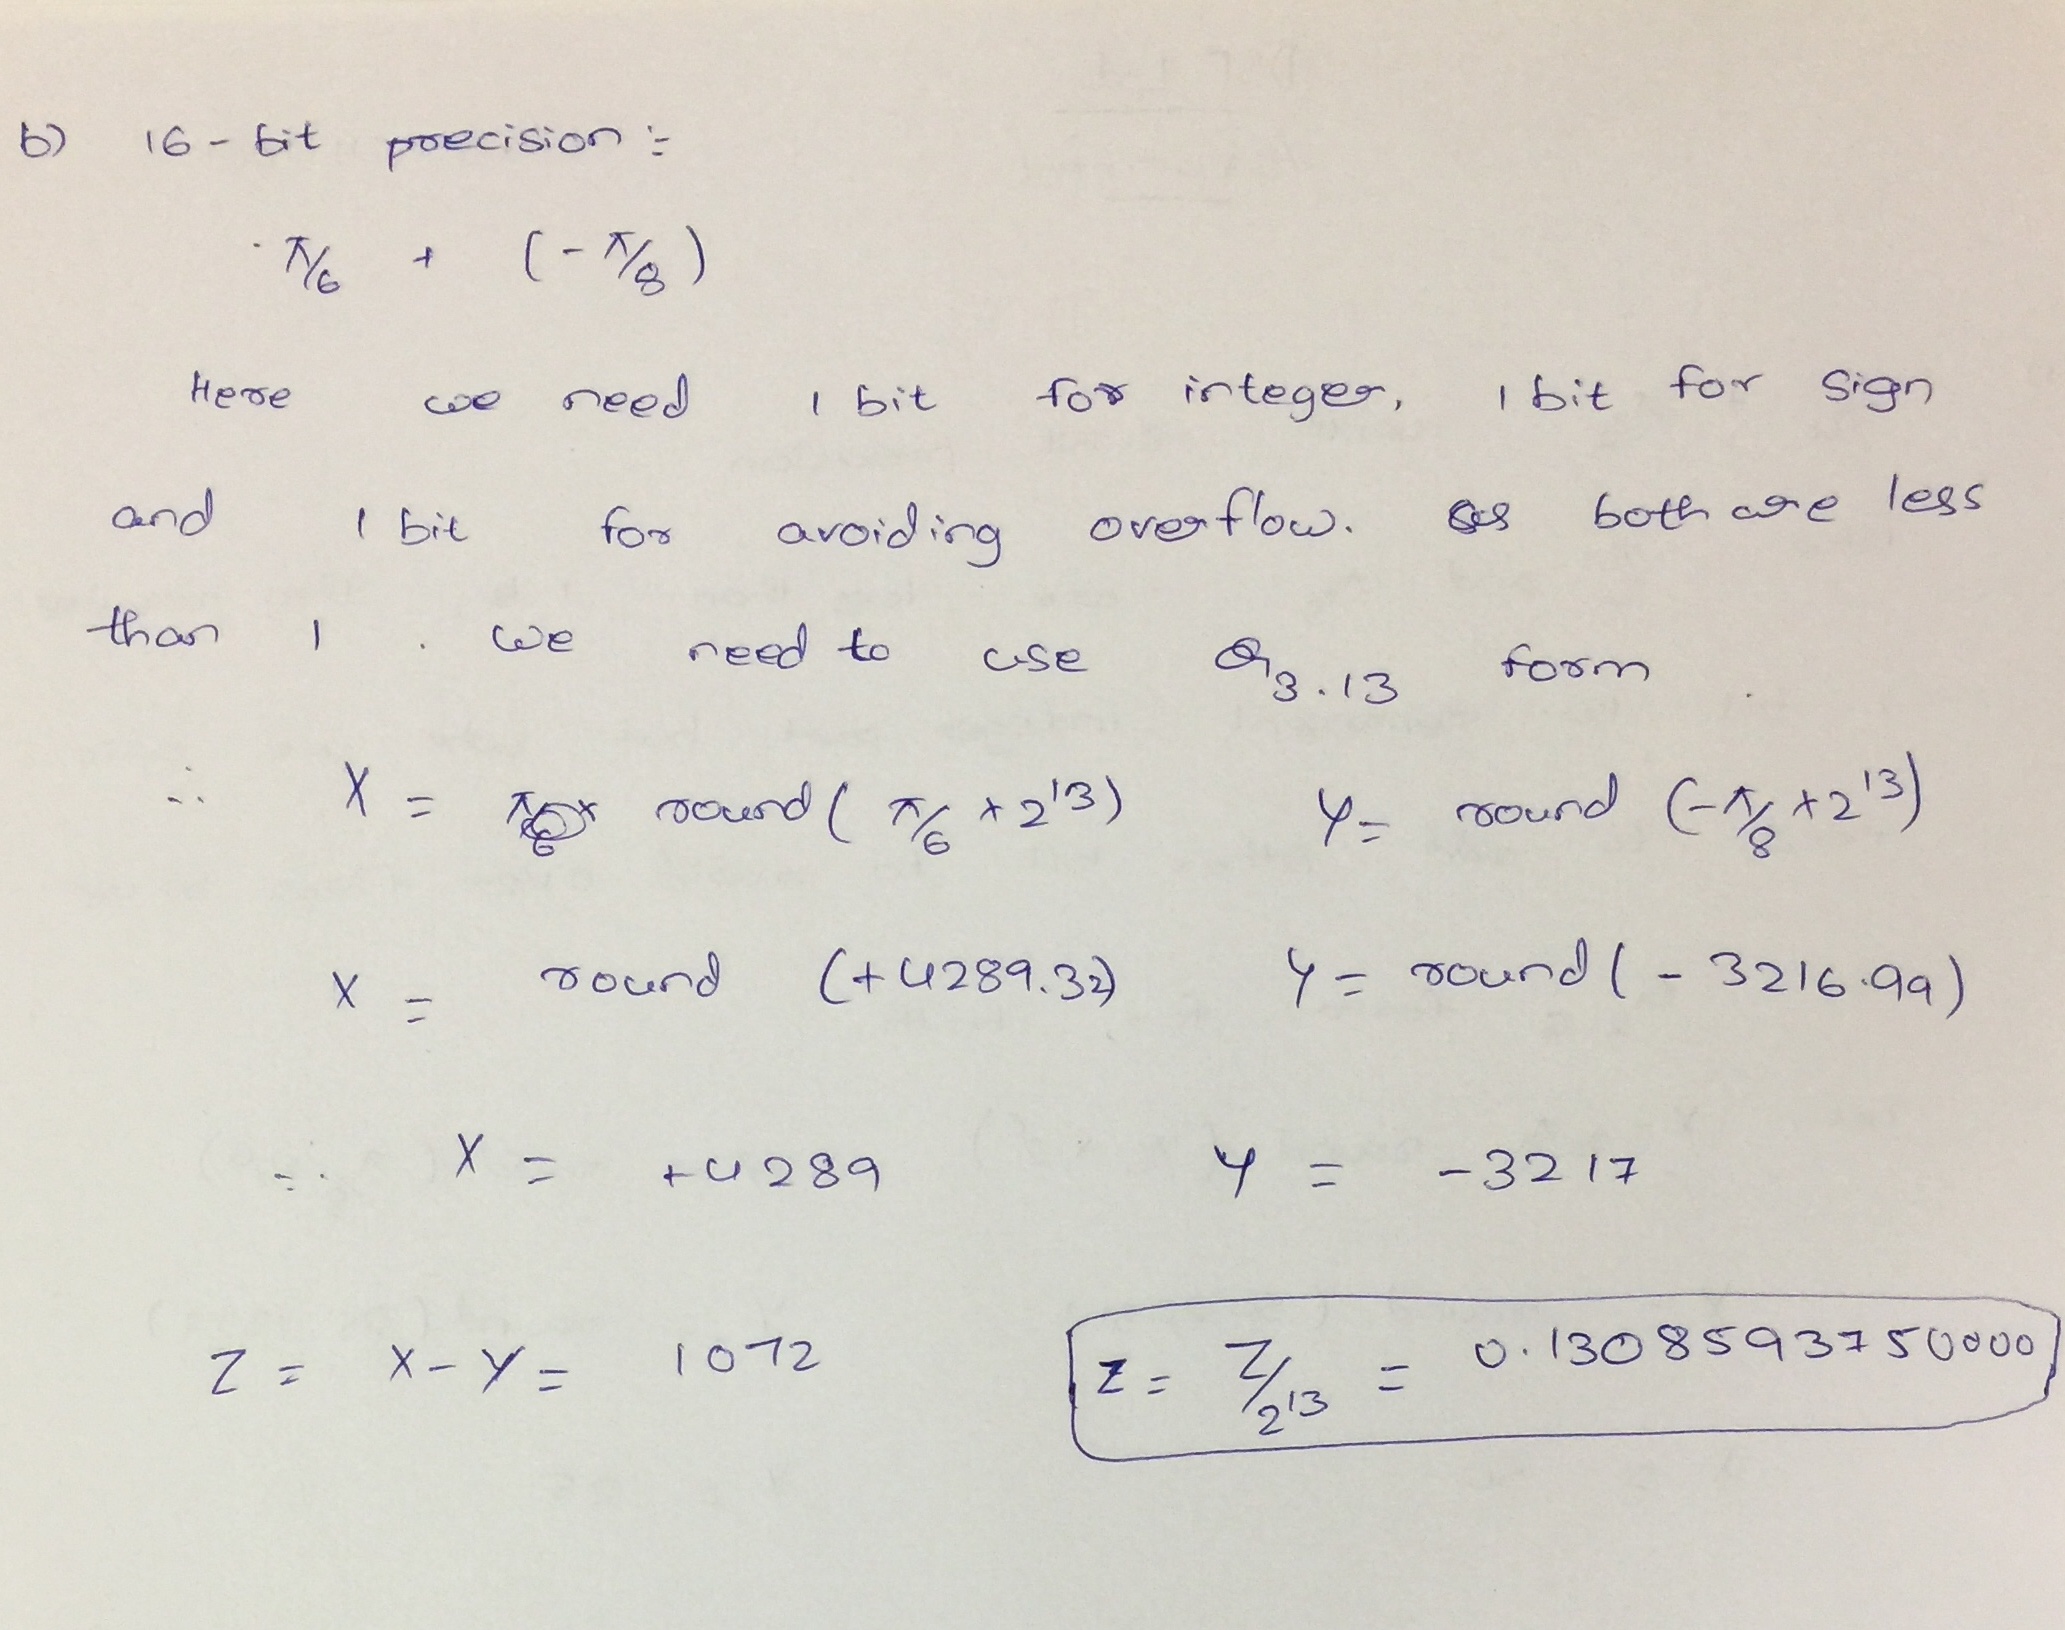 b) 16-bit precision :-
π/6 + (-π/8)
Here we need 1 bit for integer, 1 bit for sign
and 1 bit for avoiding overflow. as both are less
than 1. we need to use Q3.13 form.
∴ X = round(π/6 × 2^13) Y = round (-π/8 × 2^13)
X = round (+4289.32) Y = round(-3216.99)
∴ X = +4289 Y = -3217
Z = X-Y = 1072 z = Z/2^13 = 0.1308593750000